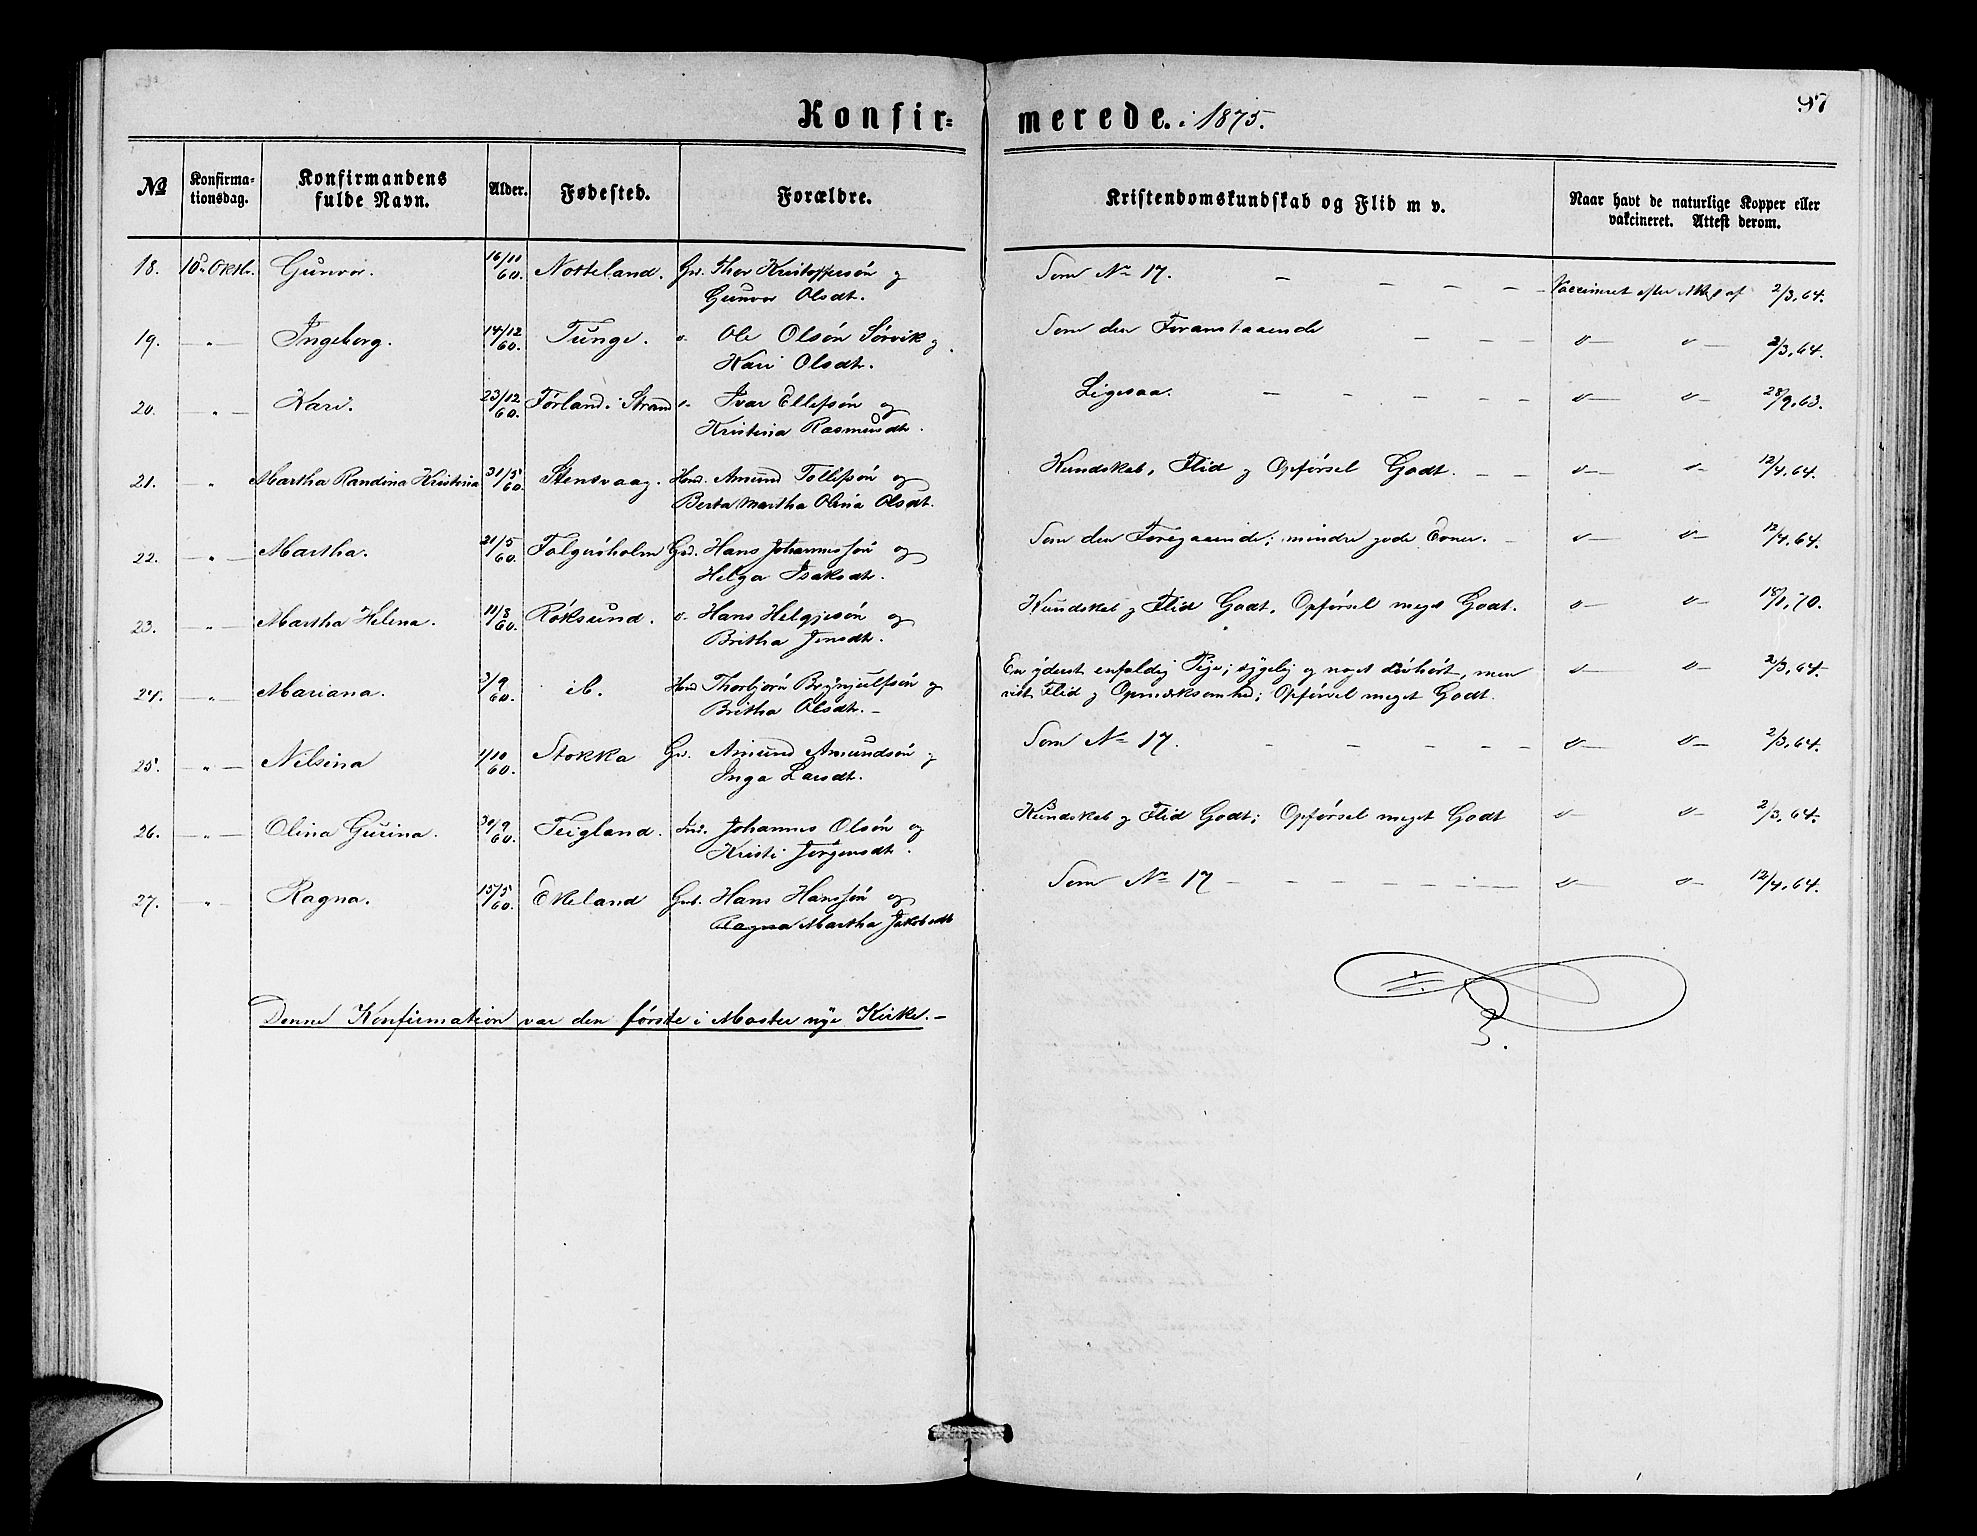 97
Konfir= merede. i 1875.
No Konfirma= Konfirmandens Alder. Fødested. Forældre. Kristendomskundskab og Flid m v. Naar havt de naturlige Kopper eller
tionsdag. fulde Navn. vakcineret. Attest derom.
18. 10de Oktbr. Gunvor. 16/11 60. Notteland. Gd. Thor Kristoffersøn og Som No 17. - - - - Vaccineret efter Att. af 2/3, 64.
Gunvor Olsdt.
19. - " - Ingeborg. 14/12 60. Tunge. o. Ole Olsøn Sørvik og Som den Foranstaaende - - - o- o- 2/3, 64.
Kari Olsdt.
20. - " - Kari. 23/12 60. Førland i Strand o. Ivar Ellefsøn og Ligesaa. - - - - - o- o- 28/9, 63.
Kristina Rasmusdt.
21. - " Martha Randina Kristina 31/5 60. Stensvaag. Hmd. Amund Tollefsøn og Kundskab, Flid og Opførsel Godt. - - o- o- 12/4, 64.
Berta Martha Olina Olsdt.
22. - " - Martha. 21/5 60. Folgerøholm Gd. Hans Johannessøn og Som den Foregaaende; mindre gode Evner. - o- o- 12/4, 64.
Helga Isaksdt.
23. - " - Martha Helena. 11/8 60. Røksund. o. Hans Helgjesøn og Kundskab og Flid Godt, Opførsel meget Godt. o- o- 18/1, 70.
Britha Jensdt.
24. - " - Mariana. 3/9 60. ib. Hmd Thorbjørn Brynjulfsøn og En yderst enfoldig Pige; sygelig og noget døvhørt, men o- o- 2/3, 64.
Britha Olsdt. - vist Flid og Opmærksomhed; Opførsel meget Godt.
25. - " - Nilsina 1/10 60. Stokka Gd. Amund Amundsøn og Som No 17. - - - - o- o- 2/3, 64.
Inga Larsdt.
26. - " - Olina Gurina. 30/9 60. Teigland. Ind. Johannes Olsøn og Kundskab og Flid Godt; Opførsel meget Godt o- o- 2/3, 64.
Kristi Jørgensdt.
27. - " - Ragna. 15/5 60. Ekeland Gmd. Hans Hanssøn og Som No 17 - - - - - - o- o- 12/4, 64.
Ragna Martha Jakobsdt
Denne Konfirmation var den første i Moster nye Kirke. -